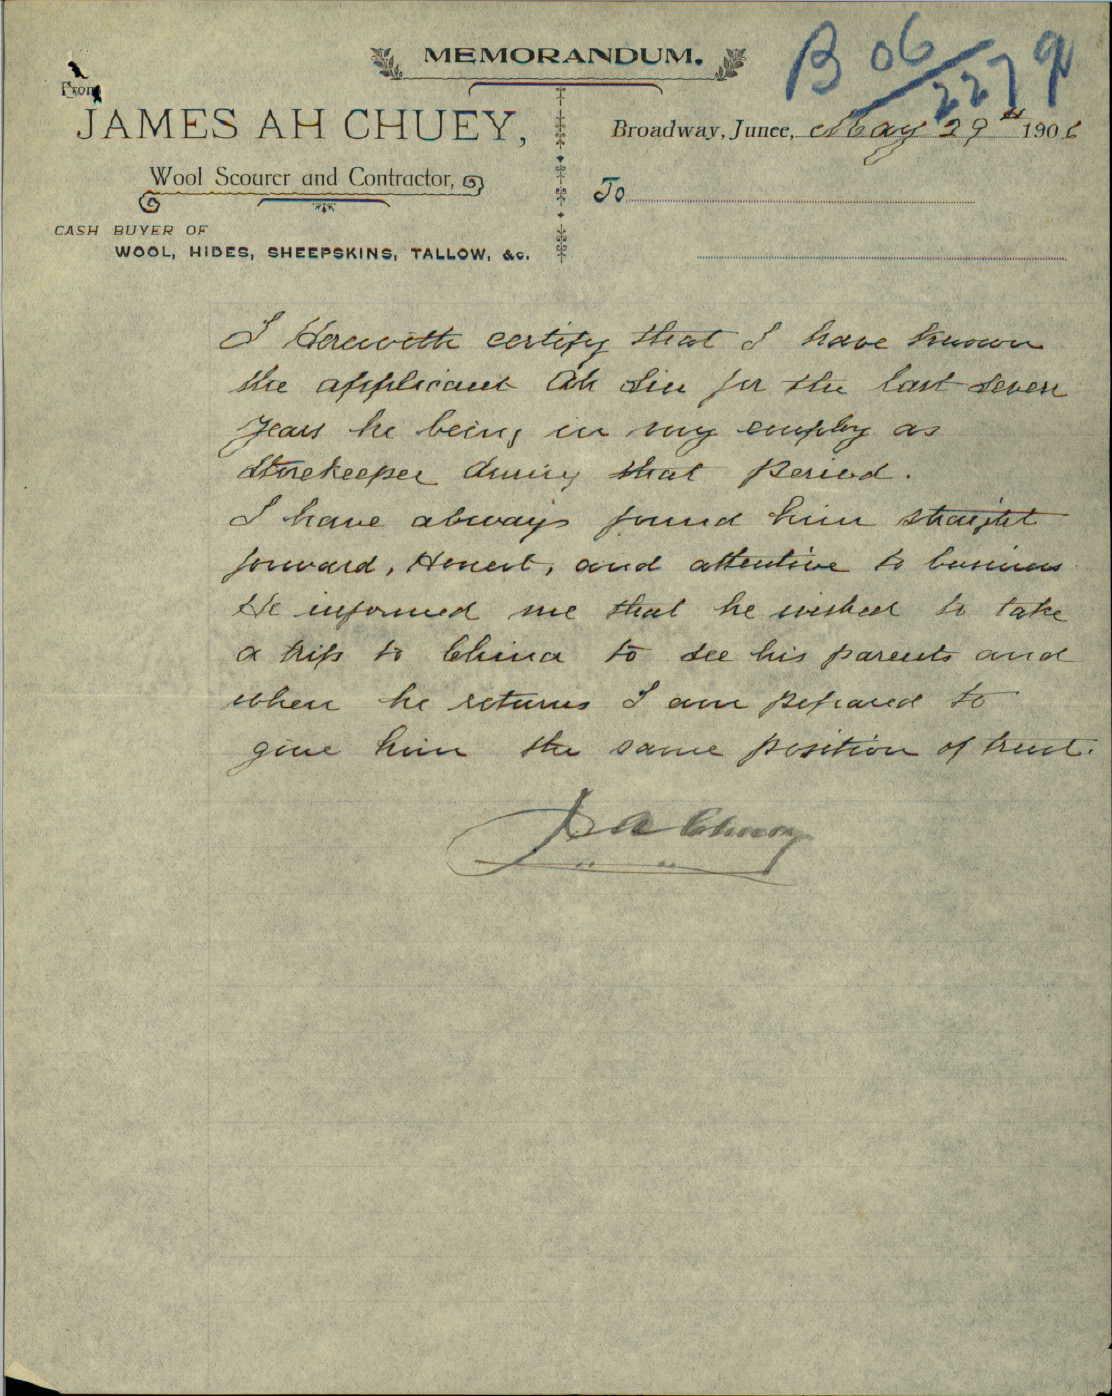 MEMORANDUM.
B 06/2279
From
JAMES AH CHUEY,
Broadway, Junee, May 29th 1906
Wool Scourer and Contractor,
To
CASH BUYER OF
WOOL, HIDES, SHEEPSKINS, TALLOW, &c.
I Herewith certify that I have known
the applicant Ah Lin for the last seven
years he being in my employ as
Storekeeper during that period.
I have always found him straight
forward, Honest, and attentive to business
He informed me that he wished to take
a trip to China to see his parents and
when he returns I am prepared to
give him the same position of trust.
J A Chuey